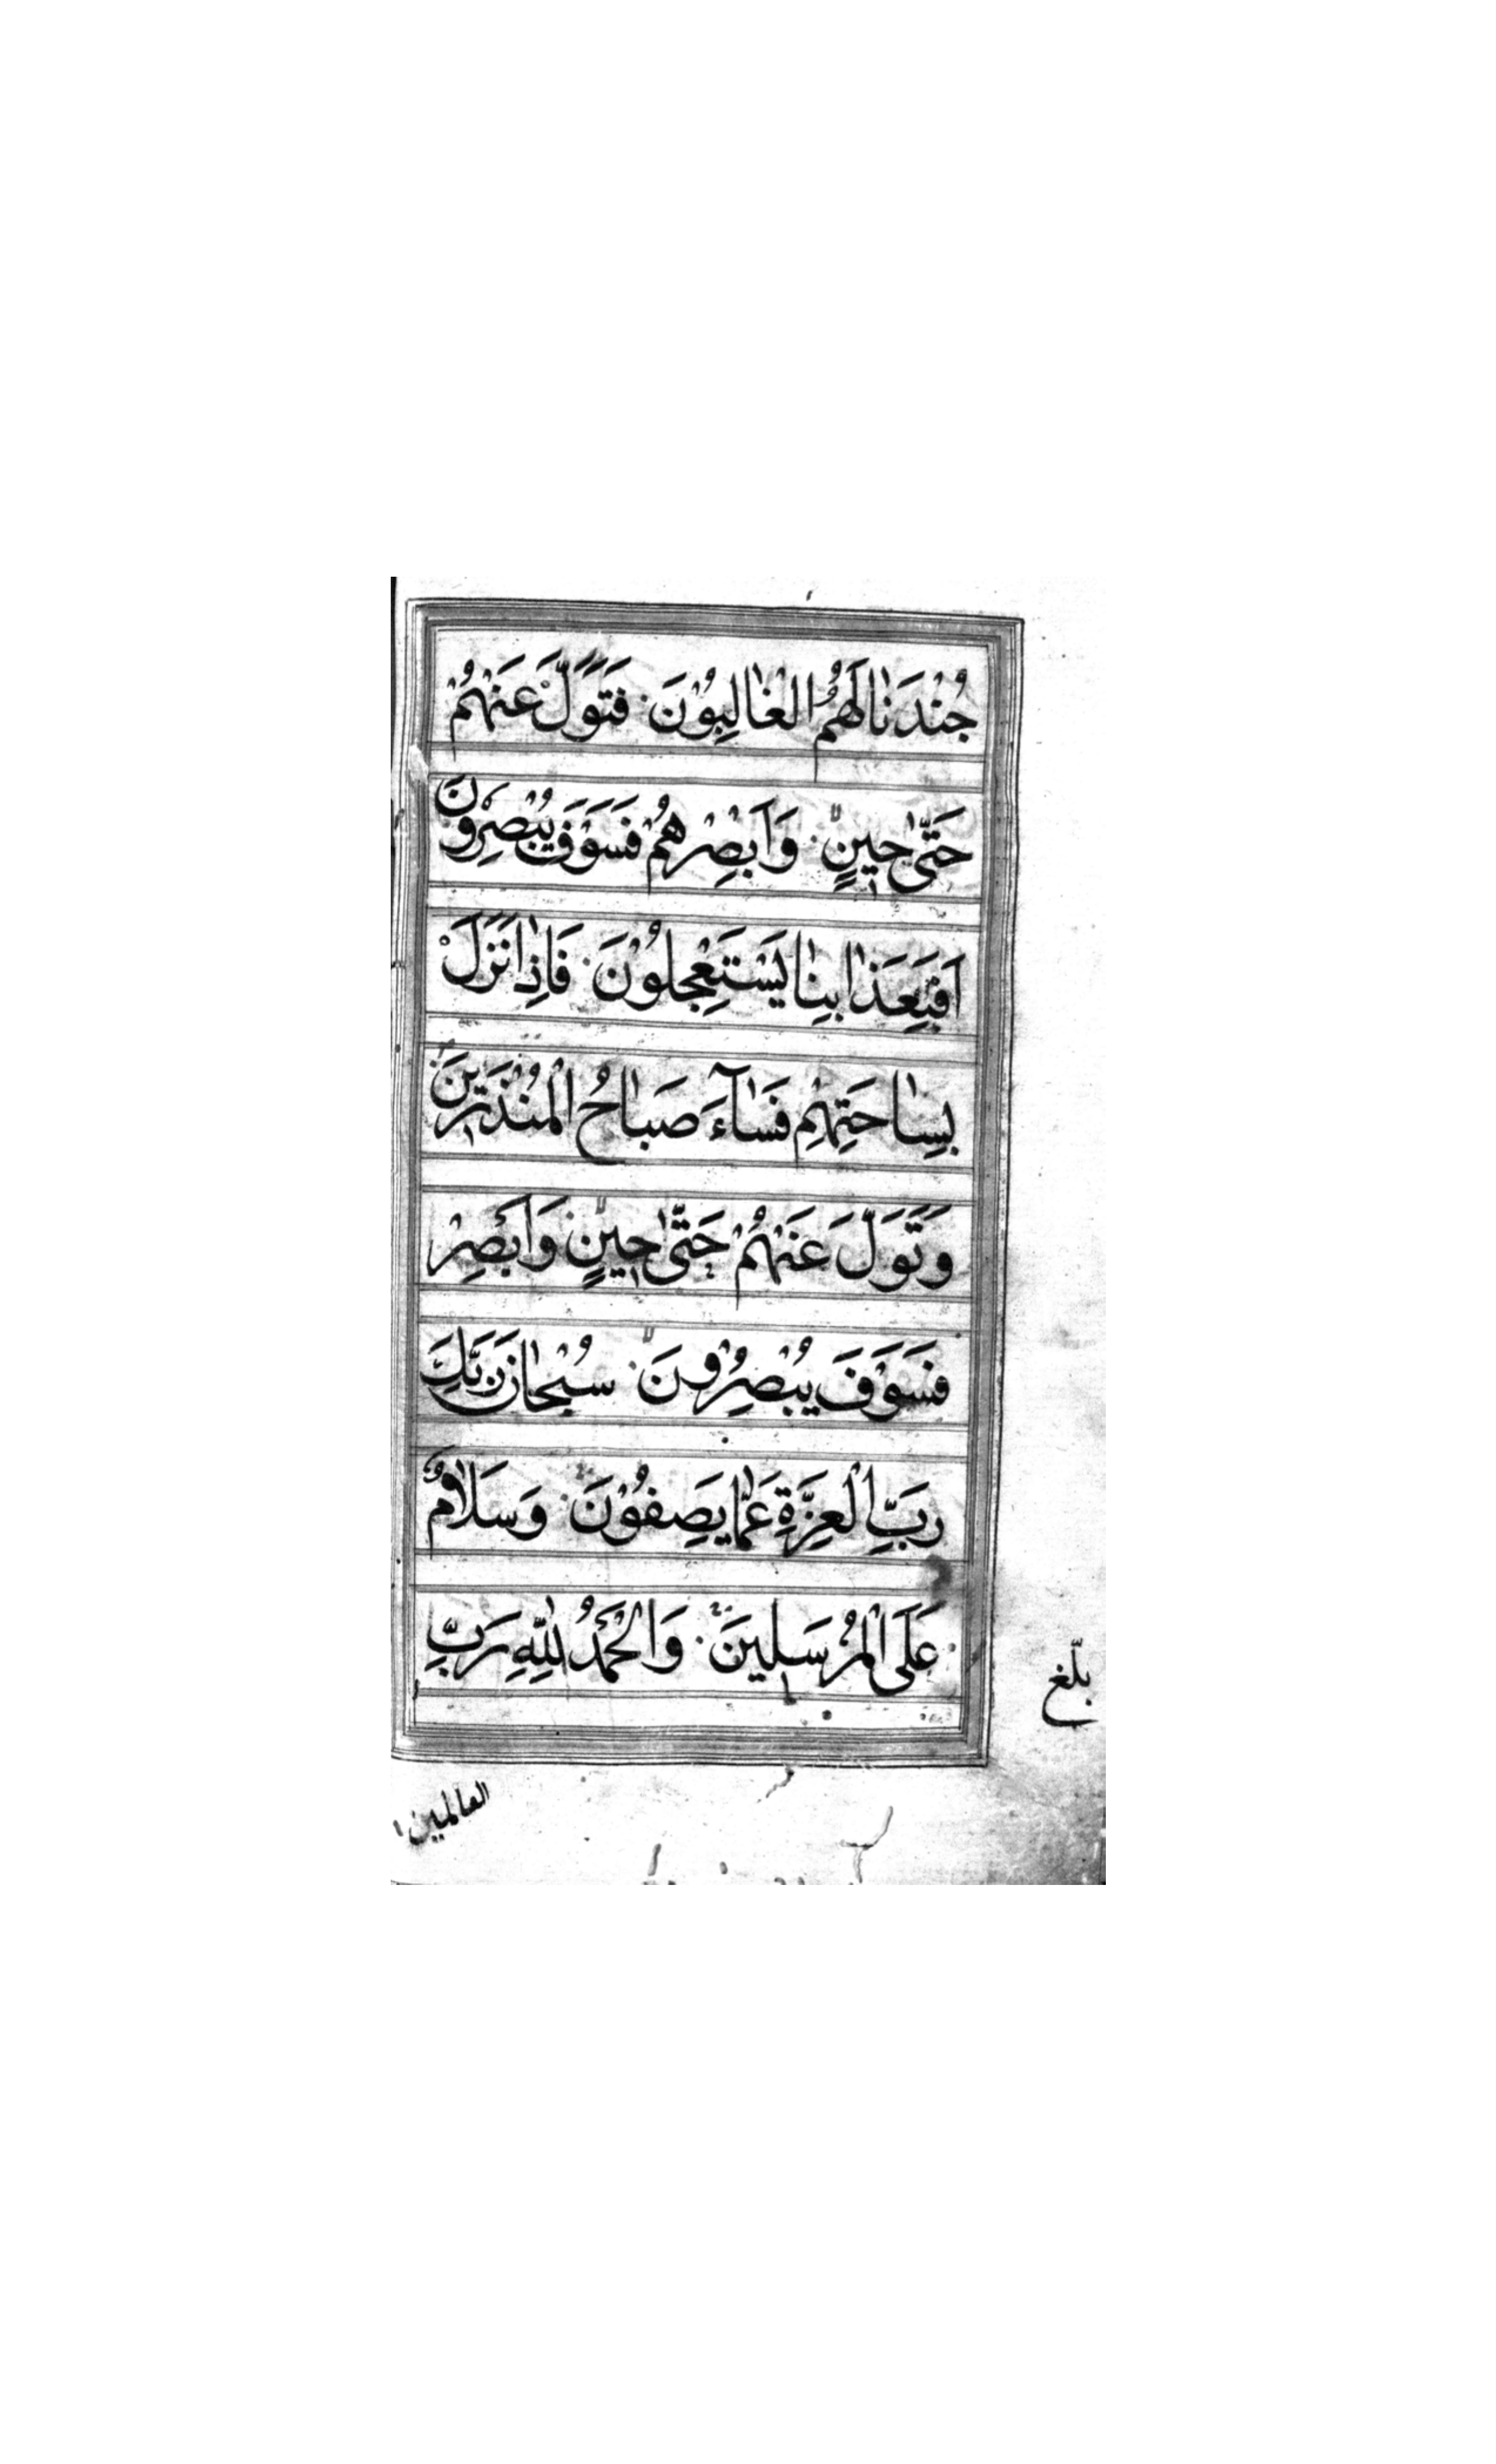 جُنْدَنَا لَهُمُ الْغَالِبُوْنَ فَتَوَلَّ عَنْهُمْ
حَتّٰى حِينٍ وَاَبْصِرْهُمْ فَسَوْفَ يُبْصِرُونَ
اَفَبِعَذَابِنَا يَسْتَعْجِلُوْنَ فَاِذَا نَزَلَ
بِسَاحَتِهِمْ فَسَآءَ صَبَاحُ الْمُنْذَرِينَ
وَتَوَلَّ عَنْهُمْ حَتّٰى حِينٍ وَاَبْصِرْ
فَسَوْفَ يُبْصِرُونَ سُبْحَانَ رَبِّكَ
رَبِّ الْعِزَّةِ عَمَّا يَصِفُوْنَ وَسَلَامٌ
عَلَى الْمُرْسَلِينَ وَالْحَمْدُ لِلّٰهِ رَبِّ
بلّغ
العالمين